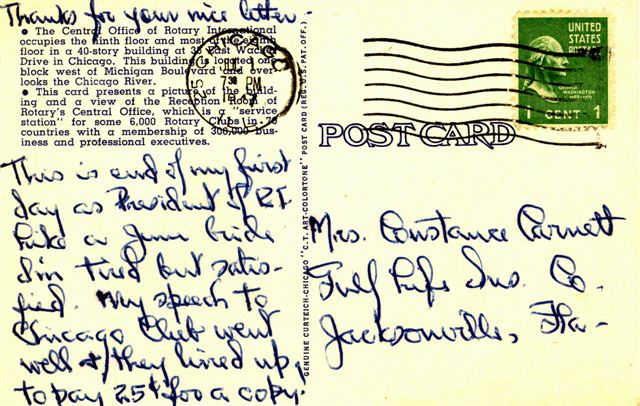 Thanks for your nice letter -
• The Central Office of Rotary International
occupies the ninth floor and most of the eighth
floor in a 40-story building at 35 East Wacker
Drive in Chicago. This building is located one
block west of Michigan Boulevard and over-
looks the Chicago River.
• This card presents a picture of the build-
ing and a view of the Reception Room of
Rotary's Central Office, which is a "service
station" for some 6,000 Rotary Clubs in 75
countries with a membership of 300,000 bus-
iness and professional executives.
This is end of my first
day as President of R.I.
Like a June bride
I'm tired but satis-
fied. My speech to
Chicago Club went
well & they lined up
to pay 25¢ for a copy.
GENUINE CURTEICH-CHICAGO "C.T. ART-COLORTONE" POST CARD (REG. U.S. PAT. OFF.)
CHICAGO
JUL
7 30 PM
1947
UNITED
STATES
GEORGE
WASHINGTON
1 CENT 1
POST CARD
Mrs. Constance Carnett
Gulf Life Ins. Co.
Jacksonville, Fla-